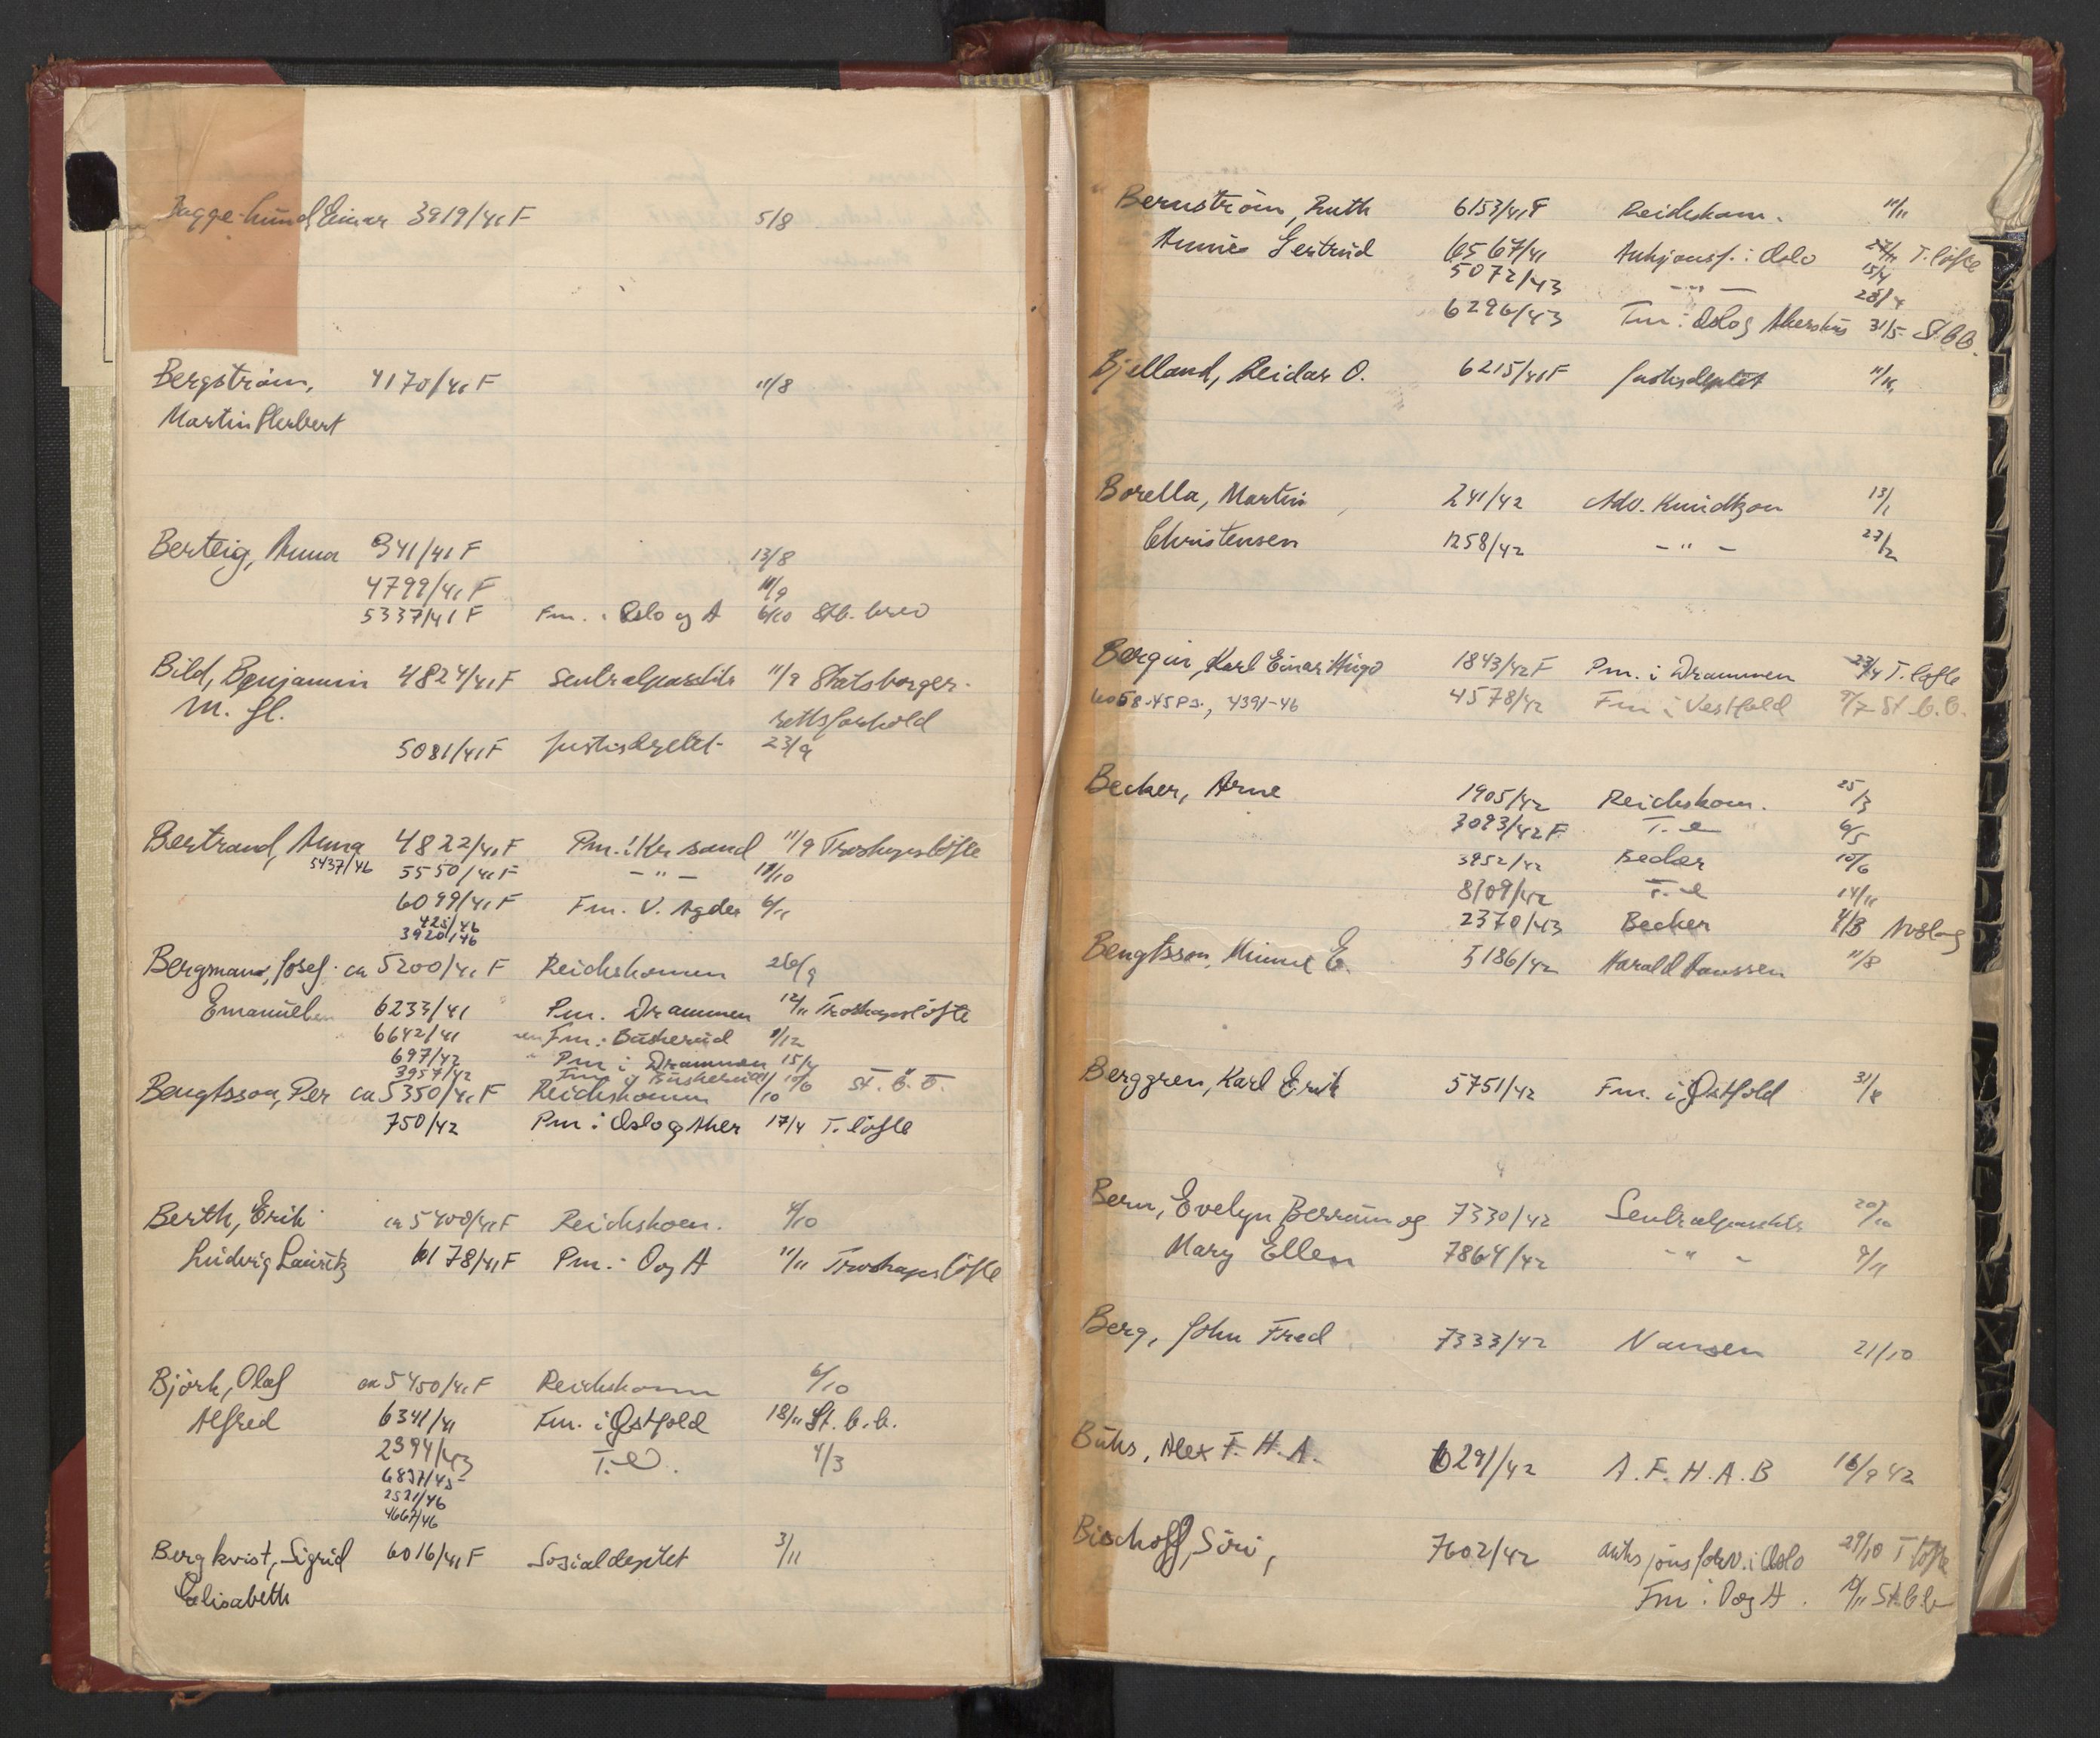 Bagge-Lund Einar 3919/41 F 5/8
Bergström, 4170/41 F 11/8
Martin Herbert
Berteig, Anna 341/41 F 13/8
4799/41 F 11/9
5337/41 F Fm. i Oslo og A 6/10 Stb. brev
Bild, Benjamin 4824/41 F Sentralpassktr 11/9 Statsborger-
m. fl. rettsforhold
5081/41 F Justisdeptet 23/9
Bertrand, Anna 4822/41 F Pm. i Kr sand 11/9 Troskapsløfte
5437/46 5550/41 F - " - 18/10
6099/41 F Fm. V. Agder 6/11
425/46
3920/46
Bergmann, Josef ca 5200/41 F Reichskomm 26/9
Emanuel 6233/41 Pm. Drammen 12/11 Troskapsløfte
6642/41 Fm. i Buskerud 1/12
697/42 " Pm i Drammen 15/4
3957/42 Fm i Buskerud 10/6 St. b. b.
Bengtsson, Per ca 5350/41 F Reichskomm 1/10
750/42 Pm i Oslo og Aker 17/4 T. løfte
Berth, Erik ca 5400/41 F Reichskom. 4/10
Ludvig Lauritz 6178/41 F Pm. i O og A 11/11 Troskapsløfte
Björk, Olaf ca 5450/41 F Reichskomm 6/10
Alfred 6341/41 Fm. i Østfold 18/11 St. b. b.
2394/43 T. e. 4/3
6837/45
2521/46
4667/46
Bergkvist, Sigrid 6016/41 F Sosialdeptet 3/11
Elisabeth
Bernström, Ruth 6153/41 F Reichskom. 11/11
Annie Gertrud 6567/41 Auksjonsf. i Oslo 27/11 T. løfte
5072/43 - " - 15/4
28/4
6296/43 Fm i Oslo og Akershus 31/5 St b b.
Bjelland, Reidar O. 6215/41 F Justisdeptet 11/11
Borella, Martin 241/42 Adv. Knudtzon 13/1
Christensen 1258/42 - " - 27/2
Bergin, Karl Einar Hugo 1843/42 F Pm. i Drammen 23/4 T. løfte
6058-45 PS., 4391-46 4578/42 Fm i Vestfold 9/7 St. b. b.
Becker, Arne 1905/42 Reichskom. 25/3
3093/42 F T. e 6/5
3952/42 Becker 10/6
8109/42 T. e 14/11
2370/43 Becker 4/3 Avslag
Bengtsson, Minnie E. 5186/42 Harald Hanssen 11/8
Berggren, Karl Erik 5751/42 Fm. i Østfold 31/8
Bern, Evelyn Berrum og 7330/42 Sentralpassktr 20/10
Mary Ellen 7864/42 - " - 9/11
Berg, John Fred 7333/42 Nansen 21/10
Buhs, Alex F. H. A. 6291/42 A. F. H. A. B 16/9 42
Bischoff, Siri, 7602/42 auksjonsforv. i Oslo 29/10 T løfte
Fm i O og A. St b b